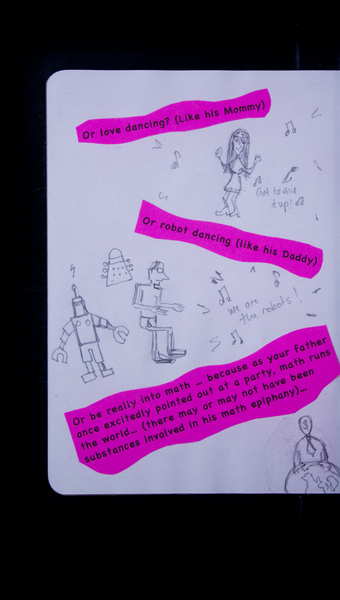 Or love dancing? (Like his Mommy)
Got to
it up!
Or robot dancing (like his Daddy)
we are
the robots!
Or be really into math ... because as your father
once excitedly pointed out at a party, math runs
the world... (there may or may not have been
substances involved in his math epiphany)...